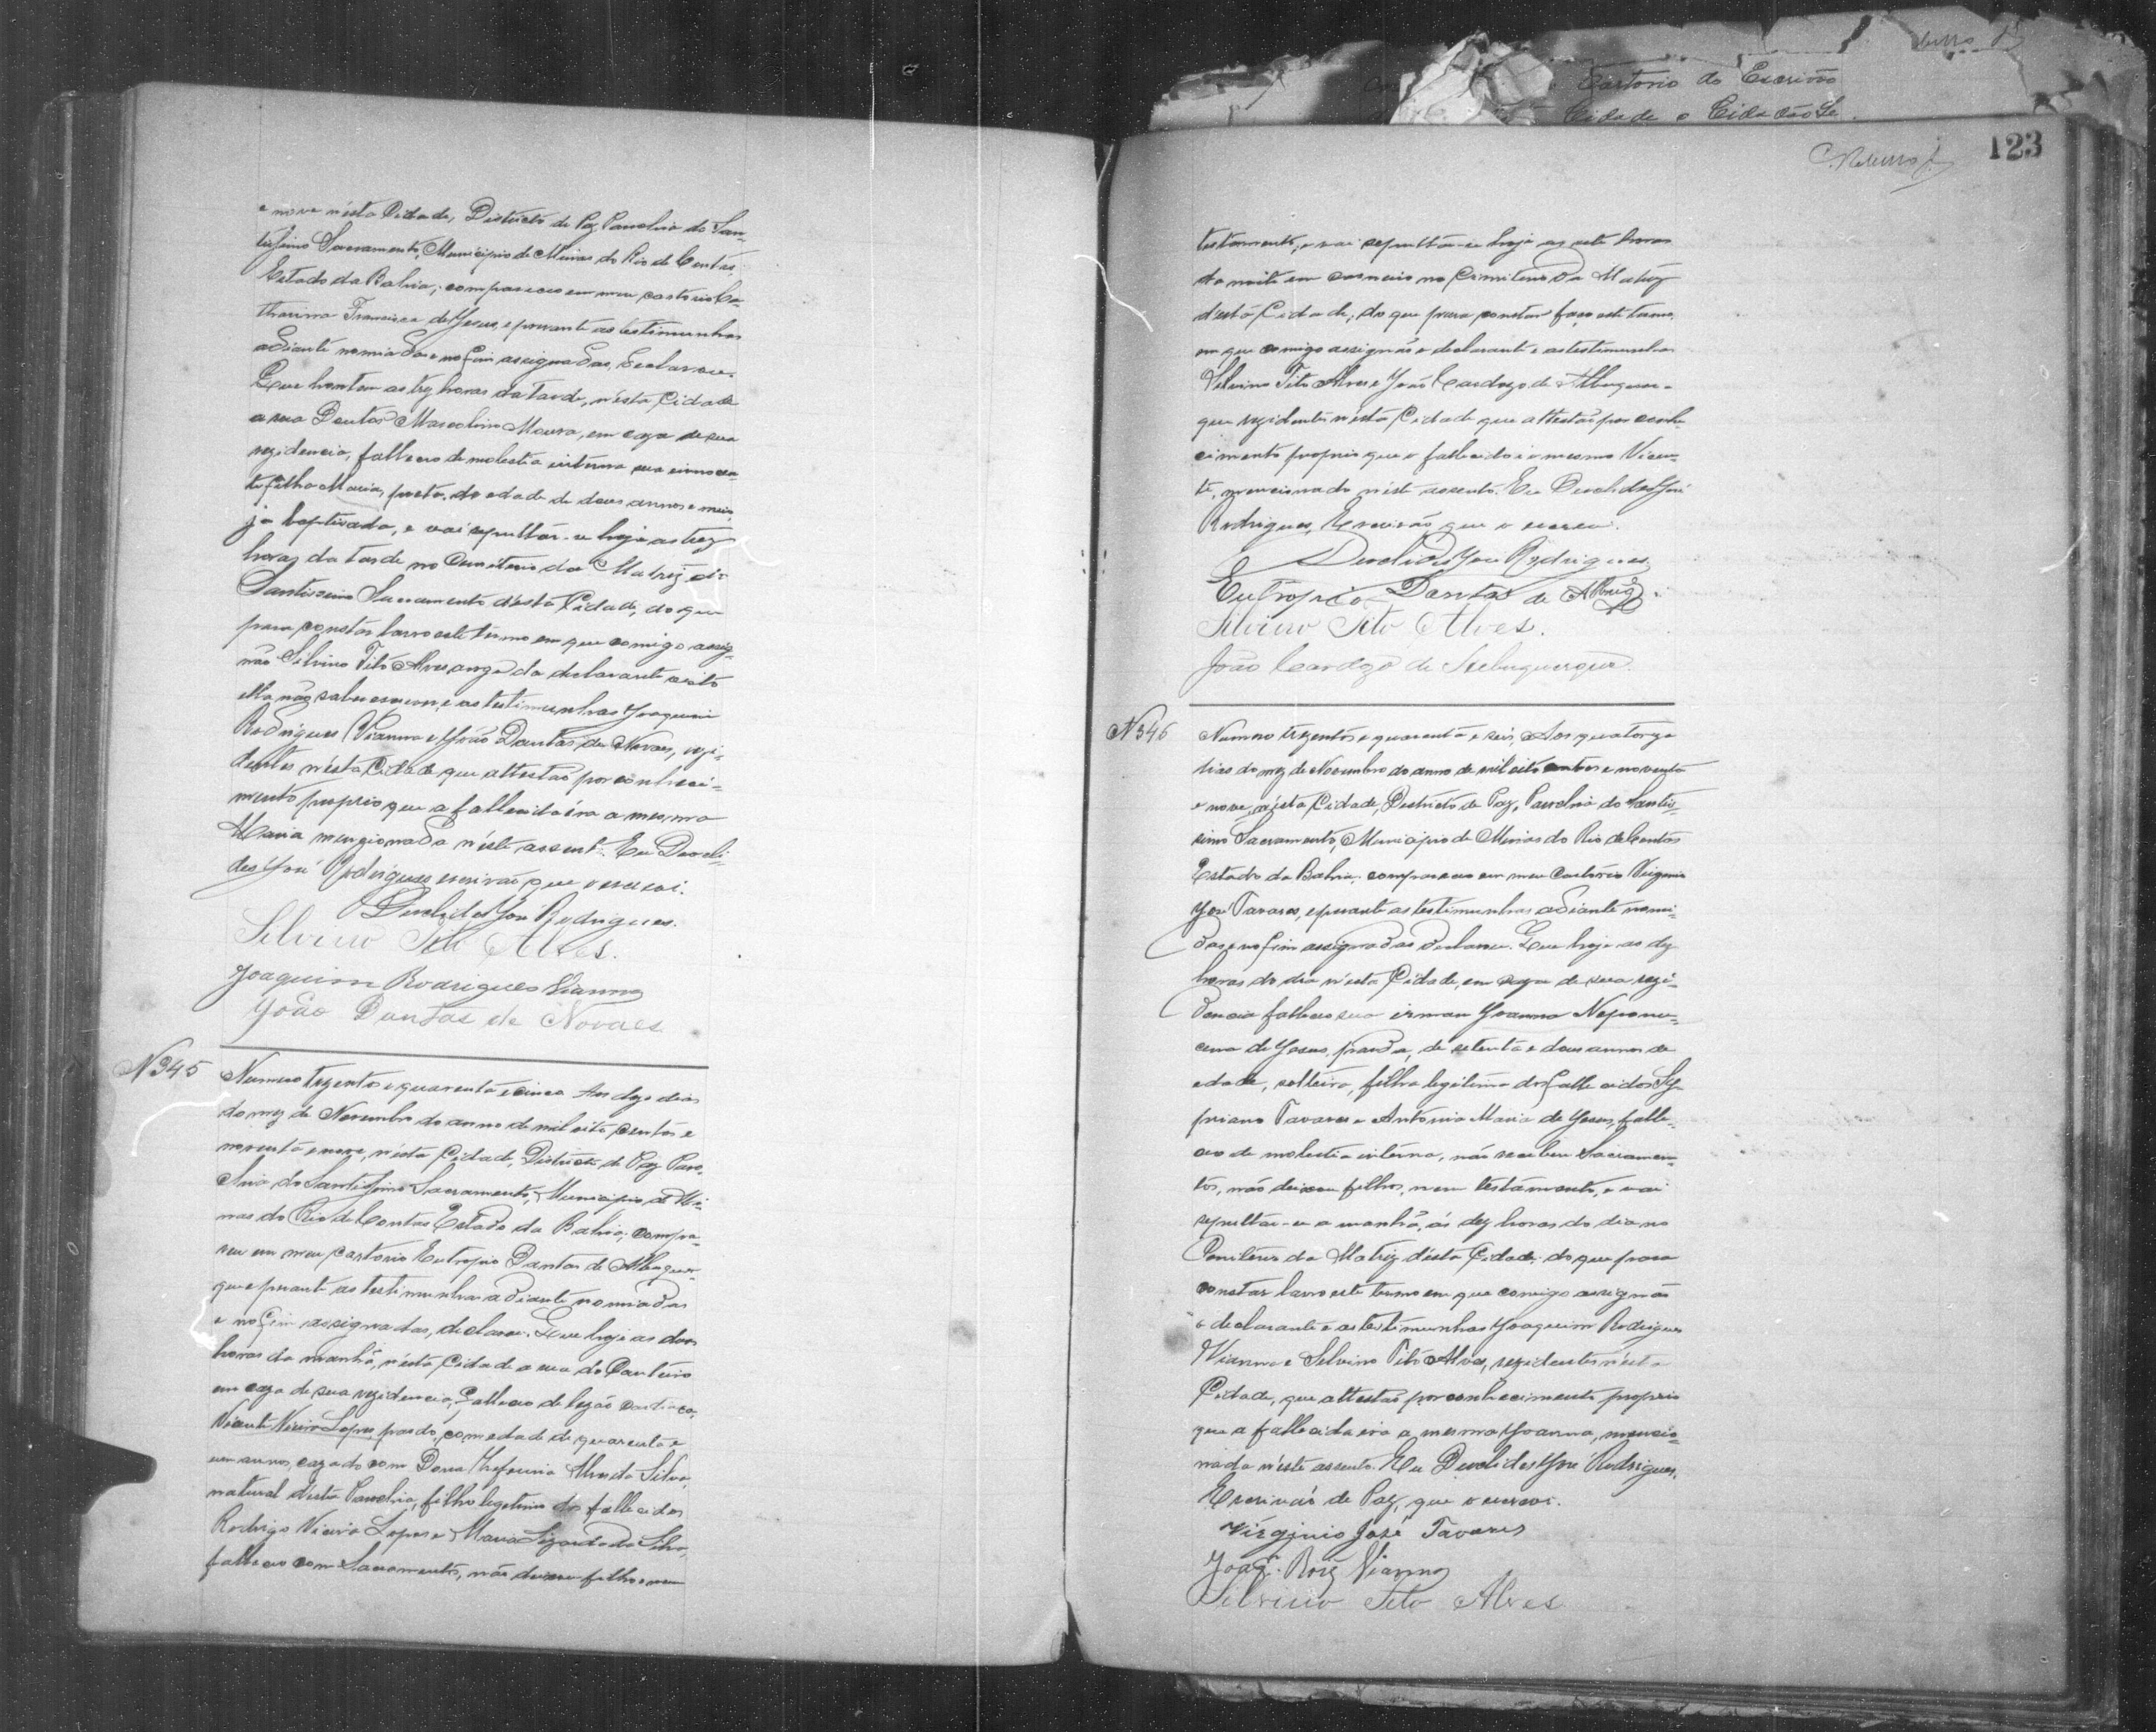 e nove n'ésta Cidade, Districto de Paz, Parochia do San-
tissimo Sacramento, Municipio de Minas do Rio de Contas,
Estado da Bahia; compareceo em meu cartorio Ca-
tharina Francisca de Jesus, e perante as testimunhas
adiante nomiadas e no fim assignadas, declarou.
Que hontem as trez horas da tarde, n'ésta Cidade
a rua Doutor Marcolino Moura, em caza de sua
rezidencia, falleceo de molestia interna sua innocen-
te filha Maria, preta, de edade de dous annos e meio,
já baptisada, e vai sepultár-se hoje as trez
horas da tarde no Cemiterio da Matriz do
Santissimo Sacramento d'ésta Cidade, do que
para constár lavro este termo em que comigo assig-
não Silvino Tito Alves arogo da declarante visto
ella não saber escrever, e as testimunhas Joaquim
Rodrigues Vianna e João Dantas de Novaes, rezi-
dentes n'ésta Cidade que attestão por conheci-
mento proprio que a fallecida éra a mesma
Maria mencionada n'éste assento. Eu Deocli-
des José Rodrigues escrivão que o escrevi.
Deoclides José Rodrigues.
Silvino Tito Alves.
Joaquim Rodrigues Vianna
João Dantas de Novaes
N 345
Numero trezentos e quarenta e cinco Aos doze dias
do mez de Novembro do anno de mil oito centos e
noventa e nove, n'ésta Cidade, Districto de Paz, Paro-
chia do Santissimo Sacramento, Municipio de Mi-
nas do Rio de Contas Estado da Bahia; compa-
receu em meu cartorio Eutropio Dantas de Albuquer-
que e perante as testimunhas adiante nomiadas
e no fim assignadas, declarou. Que hoje as duas
horas da manhã, n'ésta Cidade a rua do
em caza de sua rezidencia, falleceo de lezão cardiaca,
Vicente Vieira Lopes, pardo, com edade de quarenta e
um annos, cazado com Dona Alves da Silva,
natural d'ésta Parochia, filho legitimo dos fallecidos
Rodrigo Vieira Lopes e Maria da Silva,
falleceo com Sacramentos, não deixou filhos nem
123
Cartorio do Escrivão
Cidade o Cidadão
testamento; e vai sepultár-se hoje as sete horas
da noite em carneiro no Cimiterio da Matriz
d'ésta Cidade; do que para constar faço este termo,
em que comigo assignão o declarante e as testimunhas
Silvino Tito Alves e João Cardozo de Albuquer-
que rezidentes n'ésta Cidade que attestão por conhe-
cimento proprio que o fallecido é o mesmo Vicen-
te, mencionado n'éste assento. Eu Deoclides José
Rodrigues, Escrivão que o escrevi.
Deoclides José Rodrigues
Eutropio Dantas de Albuqe
Silvino Tito Alves.
João Cardozo de Albuquerque.
N 346
Numero trezentos e quarenta e seis, Aos quatorze
dias do mez de Novembro do anno de mil oito centos e noventa
e nove, n'ésta Cidade, Districto de Paz, Parochia do Santis-
simo Sacramento, Municipio de Minas do Rio de Contas
Estado da Bahia; compareceo em meu Cartorio Virginio
José Tavares, e perante as testimunhas adiante nomi-
das e no fim assignadas declarou. Que hoje as dez
horas do dia n'ésta Cidade, em caza de sua rezi-
dencia falleceo sua irman Joanna Nepomu-
cena de Jesus, parda, de setenta e dous annos de
edade, solteira, filha legitima dos fallecidos Cy-
priano Tavares e Antonia Maria de Jesus, falle-
ceo de molestia intérna, não recebeu Sacramen-
tos, não deixou filhos, nem testamento, e vai
sepultar-se a manhã, ás dez horas do dia no
Cemiterio da Matriz d'ésta Cidade; do que para
constar lavro este termo em que comigo assignão
o declarante e as testimunhas Joaquim Rodrigues
Vianna e Silvino Tito Alves, rezidentes n'ésta
Cidade, que attestão por conhecimento proprio
que a fallecida éra a mesma Joanna, mencio-
nada n'éste assento. Eu Deoclides José Rodrigues,
Escrivão de Paz, que o escrevi.
Virginio José Tavares
Joaqm Roiz Vianna
Silvino Tito Alves